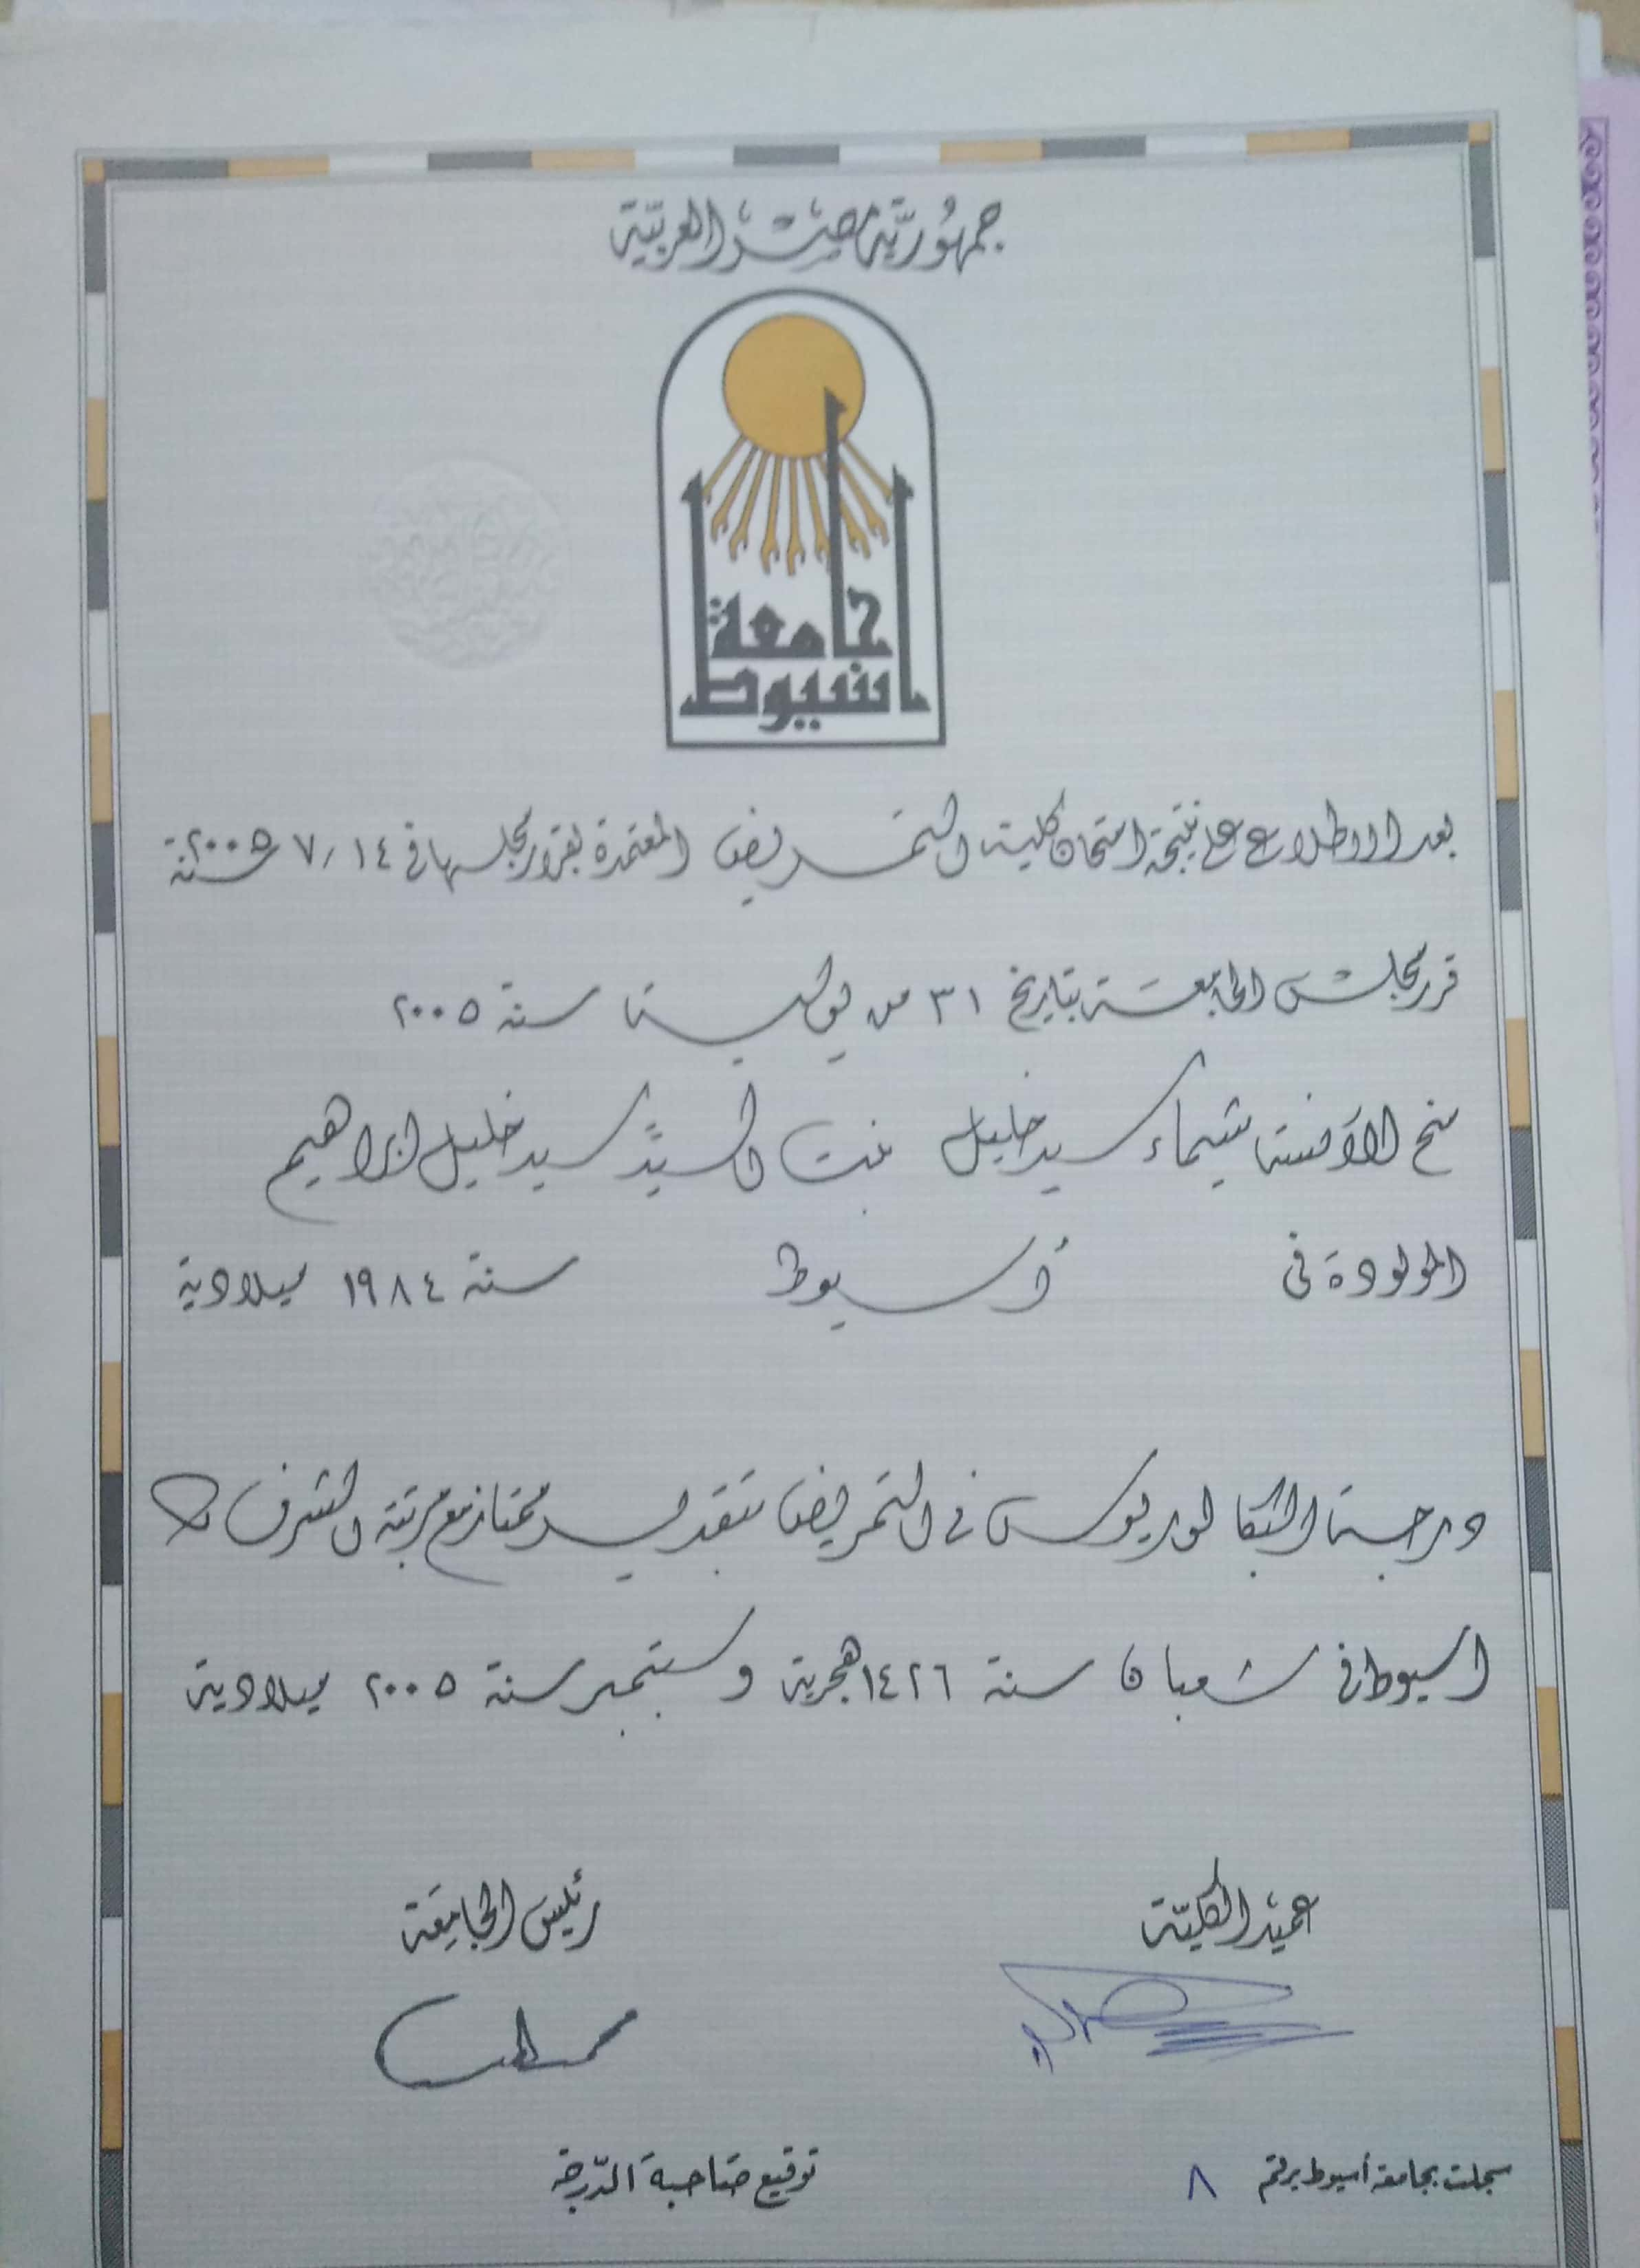 جمهورية مصر العربية
جامعة
أسيوط
بعد الاطلاع على نتيجة امتحان كلية التمريض المعتمدة بقرار مجلسها في ١٤ / ٧ سنة ٢٠٠٥
قرر مجلس الجامعة بتاريخ ٣١ من يوليه سنة ٢٠٠٥
منح الآنسة شيماء سيد خليل بنت السيد سيد خليل ابراهيم
المولودة في أسيوط سنة ١٩٨٤ ميلادية
درجة البكالوريوس في التمريض بتقدير ممتاز مع مرتبة الشرف
أسيوط في شعبان سنة ١٤٢٦ هجرية وسبتمبر سنة ٢٠٠٥ ميلادية
عميد الكلية رئيس الجامعة
سجلت بجامعة أسيوط برقم ٨ توقيع صاحبة الدرجة